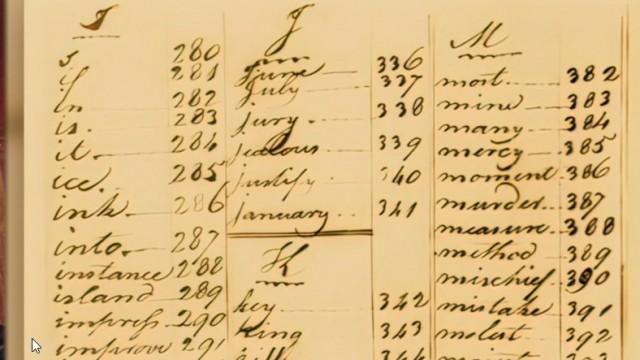 I
s 280
if 281
in 282
is. 283
it 284
ice. 285
ink 286
into 287
instance 288
island 289
impress 290
improve 291
J
June 336
July 337
jury. 338
jealous 339
justify 340
january 341
K
key 342
King 343
344
M
most 382
mine 383
many 384
mercy 385
moment 386
murder 387
measure 388
method 389
mischief 390
mistake 391
molest 392